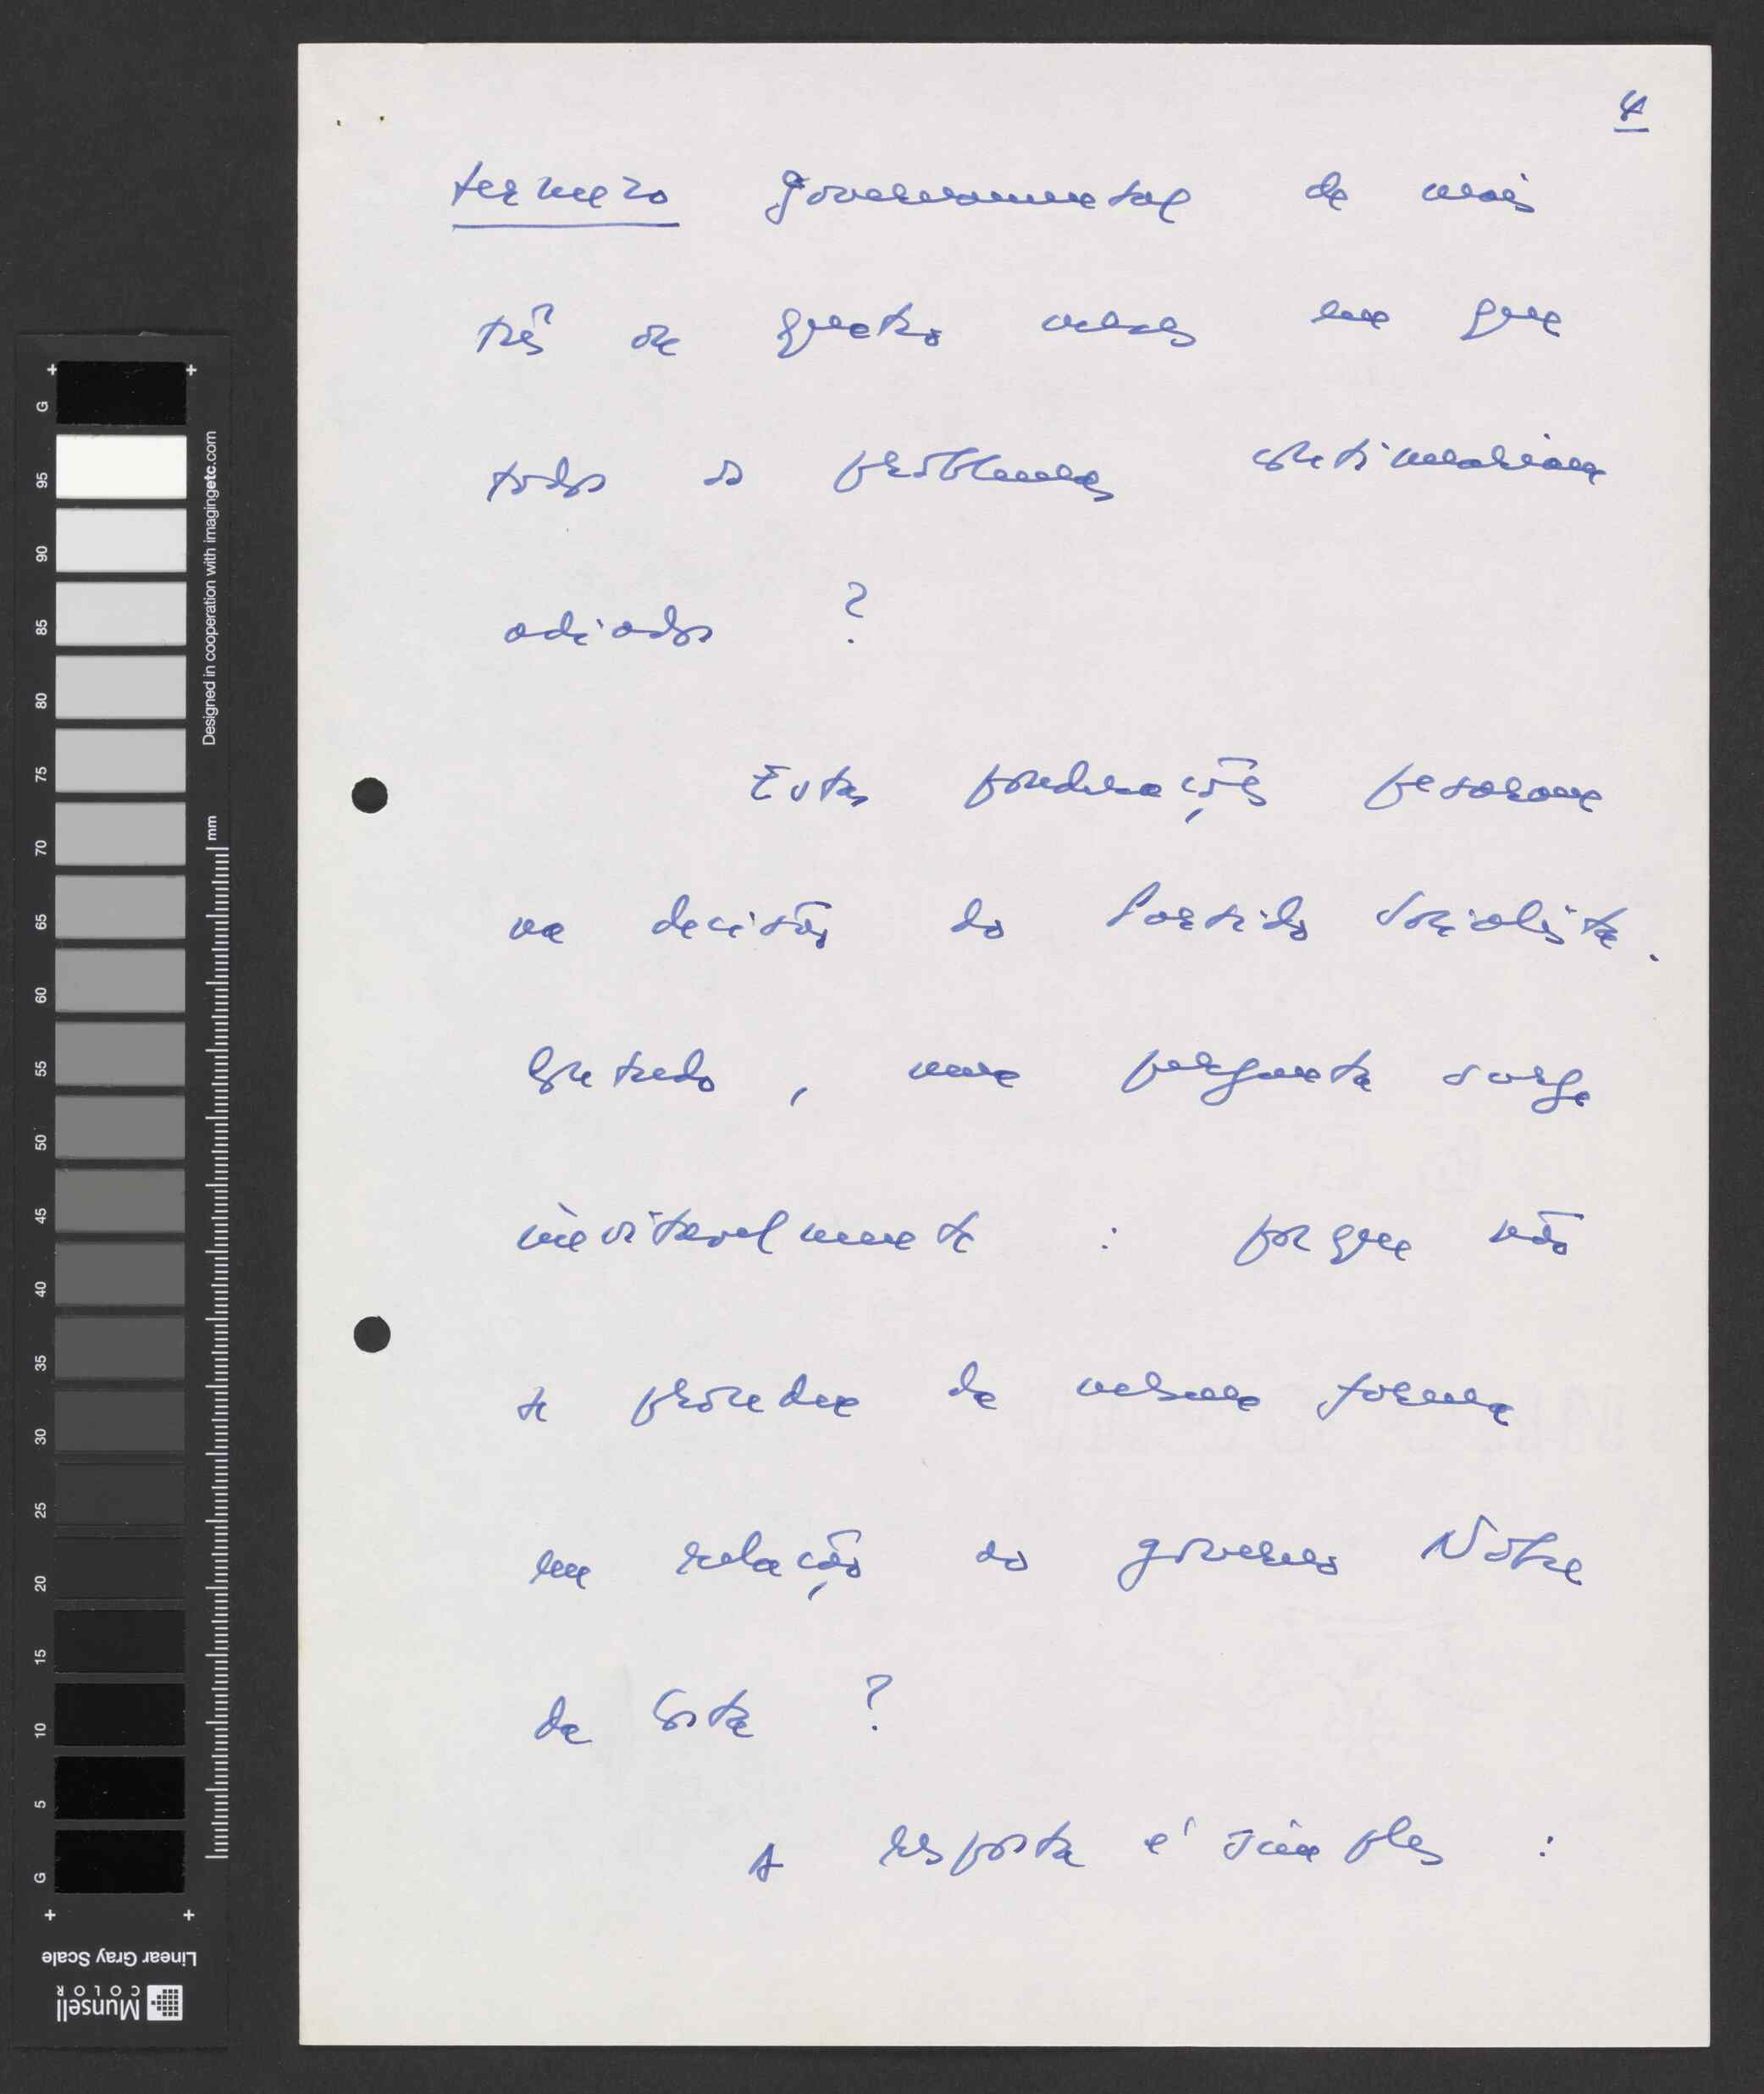 4
governamental de mais
três ou quatro meses em que
todos os problemas continuariam
adiados ?
Estas ponderações pesaram
na decisão do Partido Socialista.
Contudo , uma pergunta surge
inevitavelmente : porque não
se procedeu da mesma forma
em relação ao governo Nobre
da Costa ?
A resposta é simples :
G 95 90 85 80 75 70 65 60 55 50 45 40 35 30 25 20 15 10 5 G
Designed in cooperation with imagingetc.com
mm
Linear Gray Scale
Munsell
COLOR